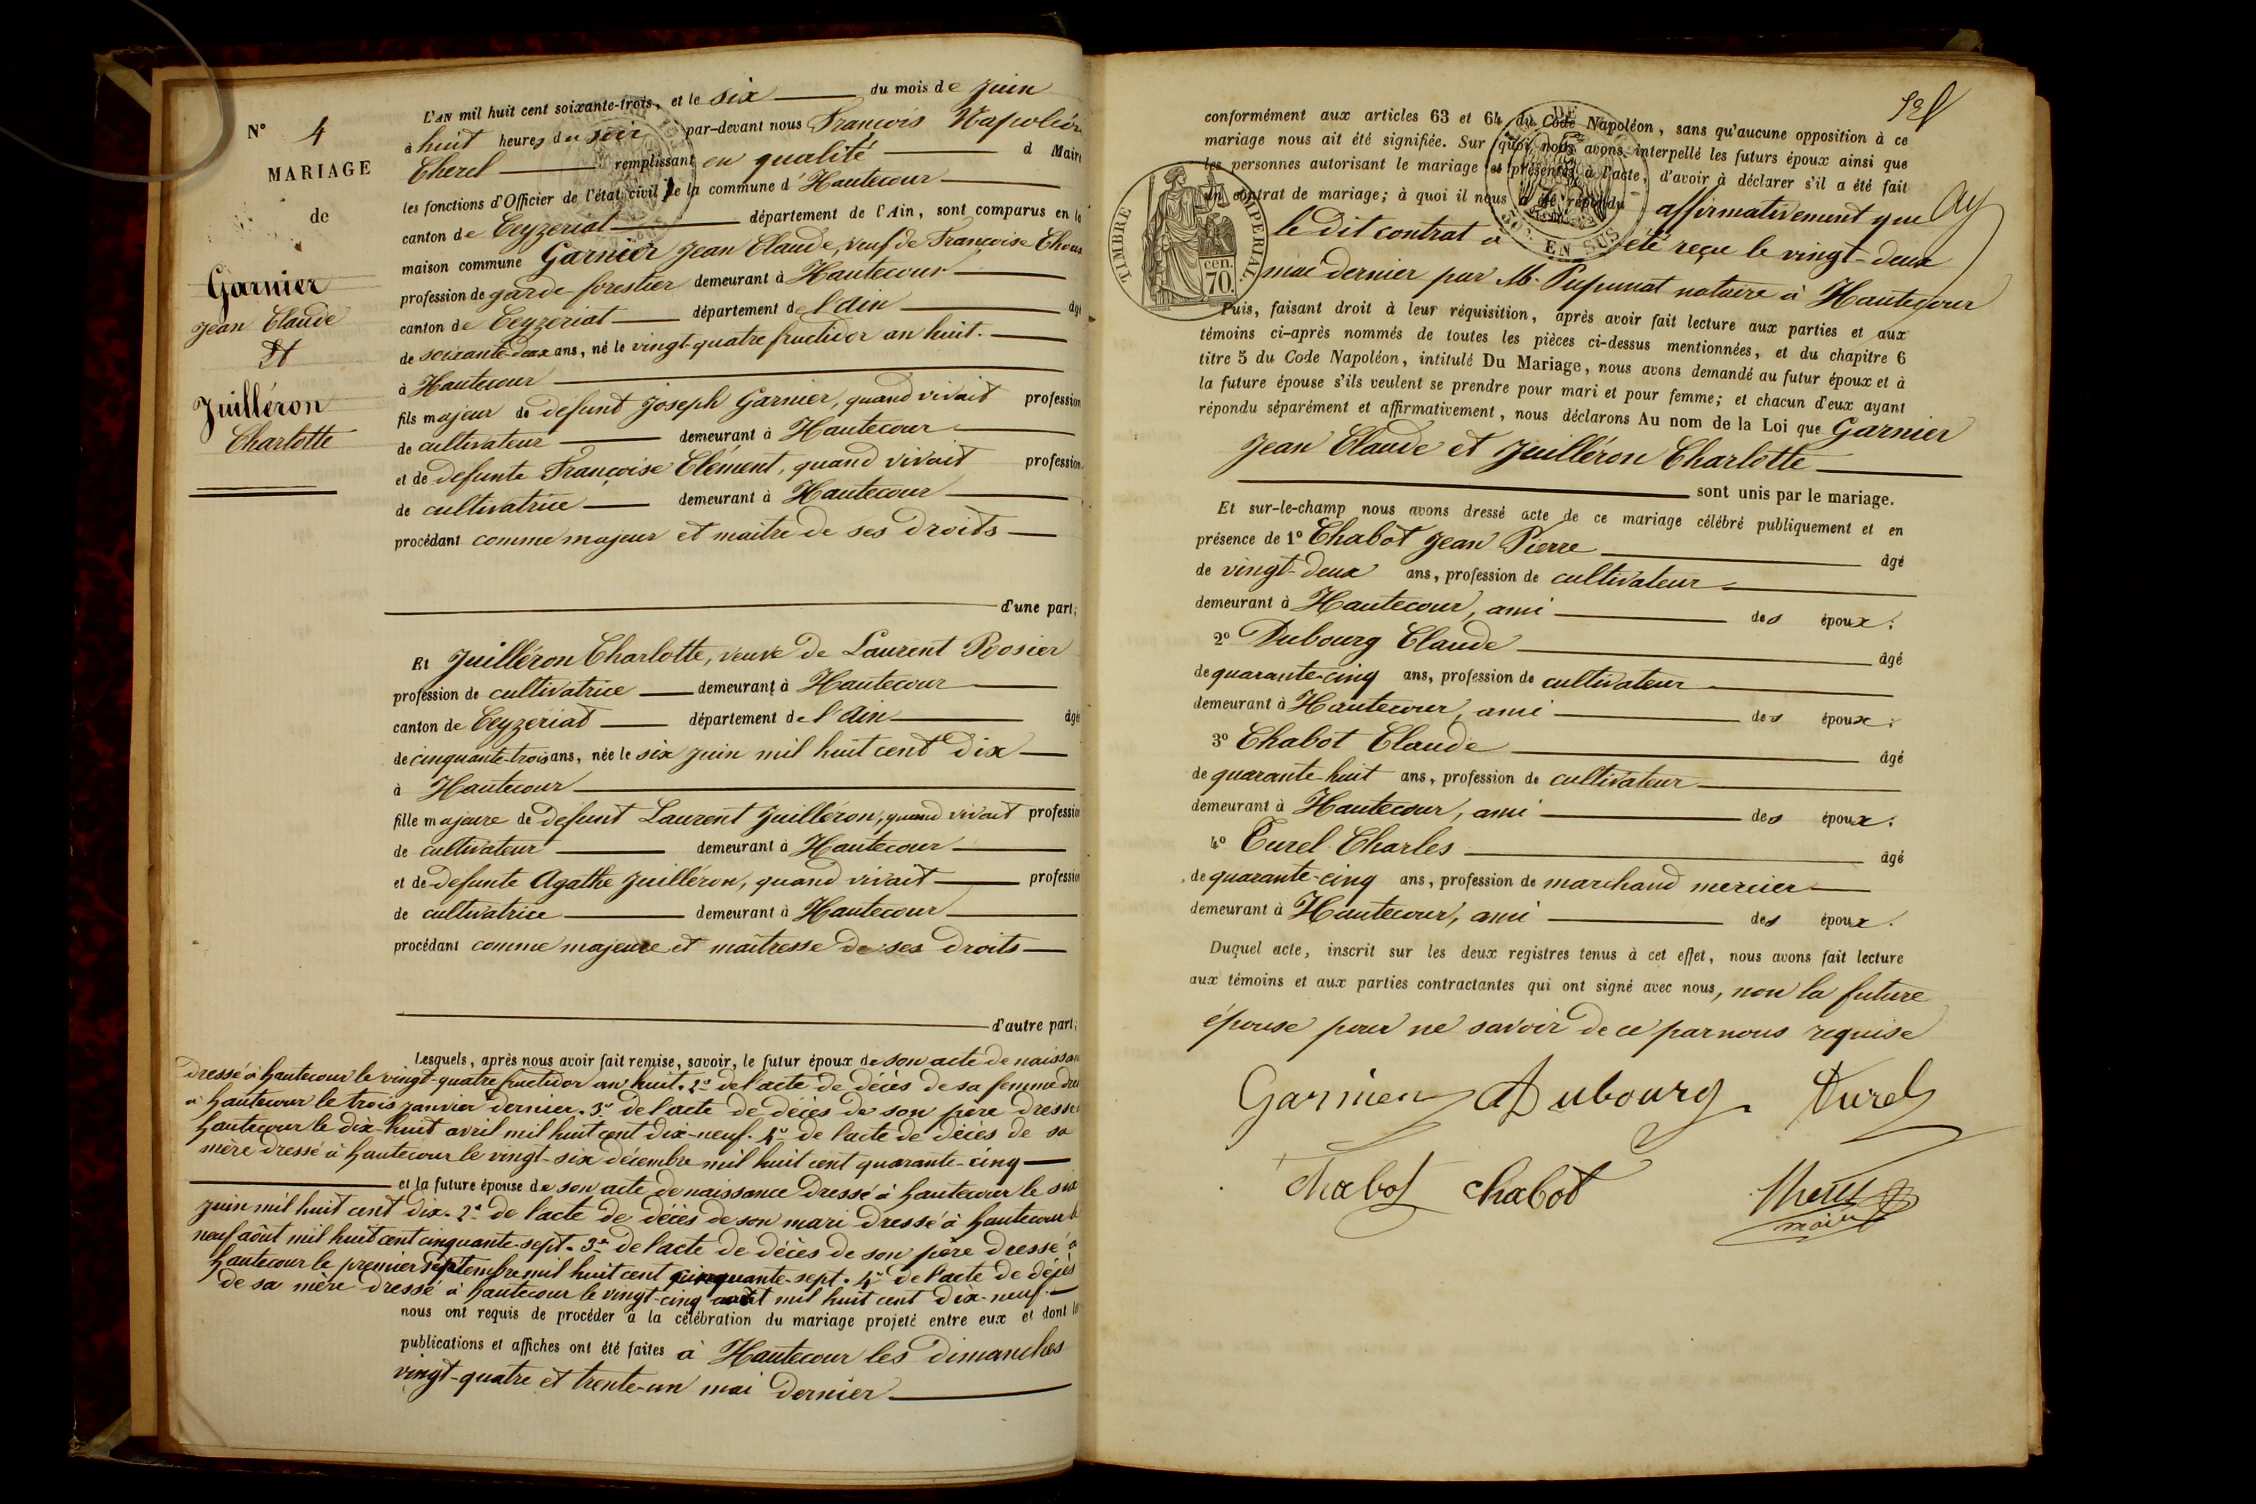 N° 4
MARIAGE
de
Garnier
Jean Claude
Et
Juilléron
Charlotte
L'AN mil huit cent soixante-trois, et le six du mois de Juin
à huit heures du soir par-devant nous François Napoléon
Cherel remplissant en qualité d Maire
les fonctions d'Officier de l'état civil de la commune d'Hautecour
canton de Ceyzeriat département de l'Ain, sont comparus en la
maison commune Garnier Jean Claude, veuf de Françoise
profession de garde forestier demeurant à Hautecour
canton de Ceyzeriat département de l'Ain âgé
de soixante-deux ans, né le vingt-quatre fructidor an huit.
à Hautecour
fils majeur de defunt Joseph Garnier, quand vivait profession
de cultivateur demeurant à Hautecour
et de defunte Françoise Clément, quand vivait profession
de cultivatrice demeurant à Hautecour
procédant comme majeur et maître de ses droits
d'une part;
Et Juilléron Charlotte, veuve de Laurent Rosier
profession de cultivatrice demeurant à Hautecour
canton de Ceyzeriat département de l'Ain âgé
de cinquante-trois ans, née le six juin mil huit cent dix
à Hautecour
fille majeure de defunt Laurent Juilléron, quand vivait profession
de cultivateur demeurant à Hautecour
et de defunte Agathe Juilléron, quand vivait profession
de cultivatrice demeurant à Hautecour
procédant comme majeure et maîtresse de ses droits
d'autre part;
Lesquels, après nous avoir fait remise, savoir, le futur époux de son acte de naissan
dressé à hautecour le vingt-quatre fructidor an huit. 2° de l'acte de décès de sa femme dres
à hautecour le trois janvier dernier. 3° de l'acte de décès de son père dressé
hautecour le dix-huit avril mil huit cent dix-neuf. 4° de l'acte de décès de sa
mère dressé à hautecour le vingt-six décembre mil huit cent quarante-cinq
et la future épouse de son acte de naissance dressé à hautecour le six
juin mil huit cent dix. 2° de l'acte de décès de son mari dressé à hautecour le
neuf août mil huit cent cinquante-sept. 3° de l'acte de décès de son père dressé à
hautecour le premier septembre mil huit cent cinquante-sept. 4° de l'acte de décès
de sa mère dressé à hautecour le vingt-cinq août mil huit cent dix-neuf.
nous ont requis de procéder à la célébration du mariage projeté entre eux et dont les
publications et affiches ont été faites à Hautecour les dimanches
vingt-quatre et trente-un mai dernier
conformément aux articles 63 et 64 du Code Napoléon, sans qu'aucune opposition à ce
mariage nous ait été signifiée. Sur quoi nous avons interpellé les futurs époux ainsi que
les personnes autorisant le mariage et présentes à l'acte, d'avoir à déclarer s'il a été fait
un contrat de mariage; à quoi il nous a été répondu affirmativement que
le dit contrat a été reçu le vingt-deux
mai dernier par M. notaire à Hautecour
TIMBRE IMPERIAL
cen. 70.
DE
50c EN SUS
Puis, faisant droit à leur réquisition, après avoir fait lecture aux parties et aux
témoins ci-après nommés de toutes les pièces ci-dessus mentionnées, et du chapitre 6
titre 5 du Code Napoléon, intitulé Du Mariage, nous avons demandé au futur époux et à
la future épouse s'ils veulent se prendre pour mari et pour femme; et chacun d'eux ayant
répondu séparément et affirmativement, nous déclarons Au nom de la Loi que Garnier
Jean Claude et Juilléron Charlotte
sont unis par le mariage.
Et sur-le-champ nous avons dressé acte de ce mariage célébré publiquement et en
présence de 1° Chabot Jean Pierre âgé
de vingt-deux ans, profession de cultivateur
demeurant à Hautecour, ami des époux.
2° Dubourg Claude âgé
de quarante-cinq ans, profession de cultivateur
demeurant à Hautecour, ami des époux.
3° Chabot Claude âgé
de quarante-huit ans, profession de cultivateur
demeurant à Hautecour, ami des époux.
4° Turel Charles âgé
de quarante-cinq ans, profession de marchand mercier
demeurant à Hautecour, ami des époux.
Duquel acte, inscrit sur les deux registres tenus à cet effet, nous avons fait lecture
aux témoins et aux parties contractantes qui ont signé avec nous, non la future
épouse pour ne savoir de ce par nous requise
Garnier Dubourg Turel
Chabot Chabot Cherel
maire